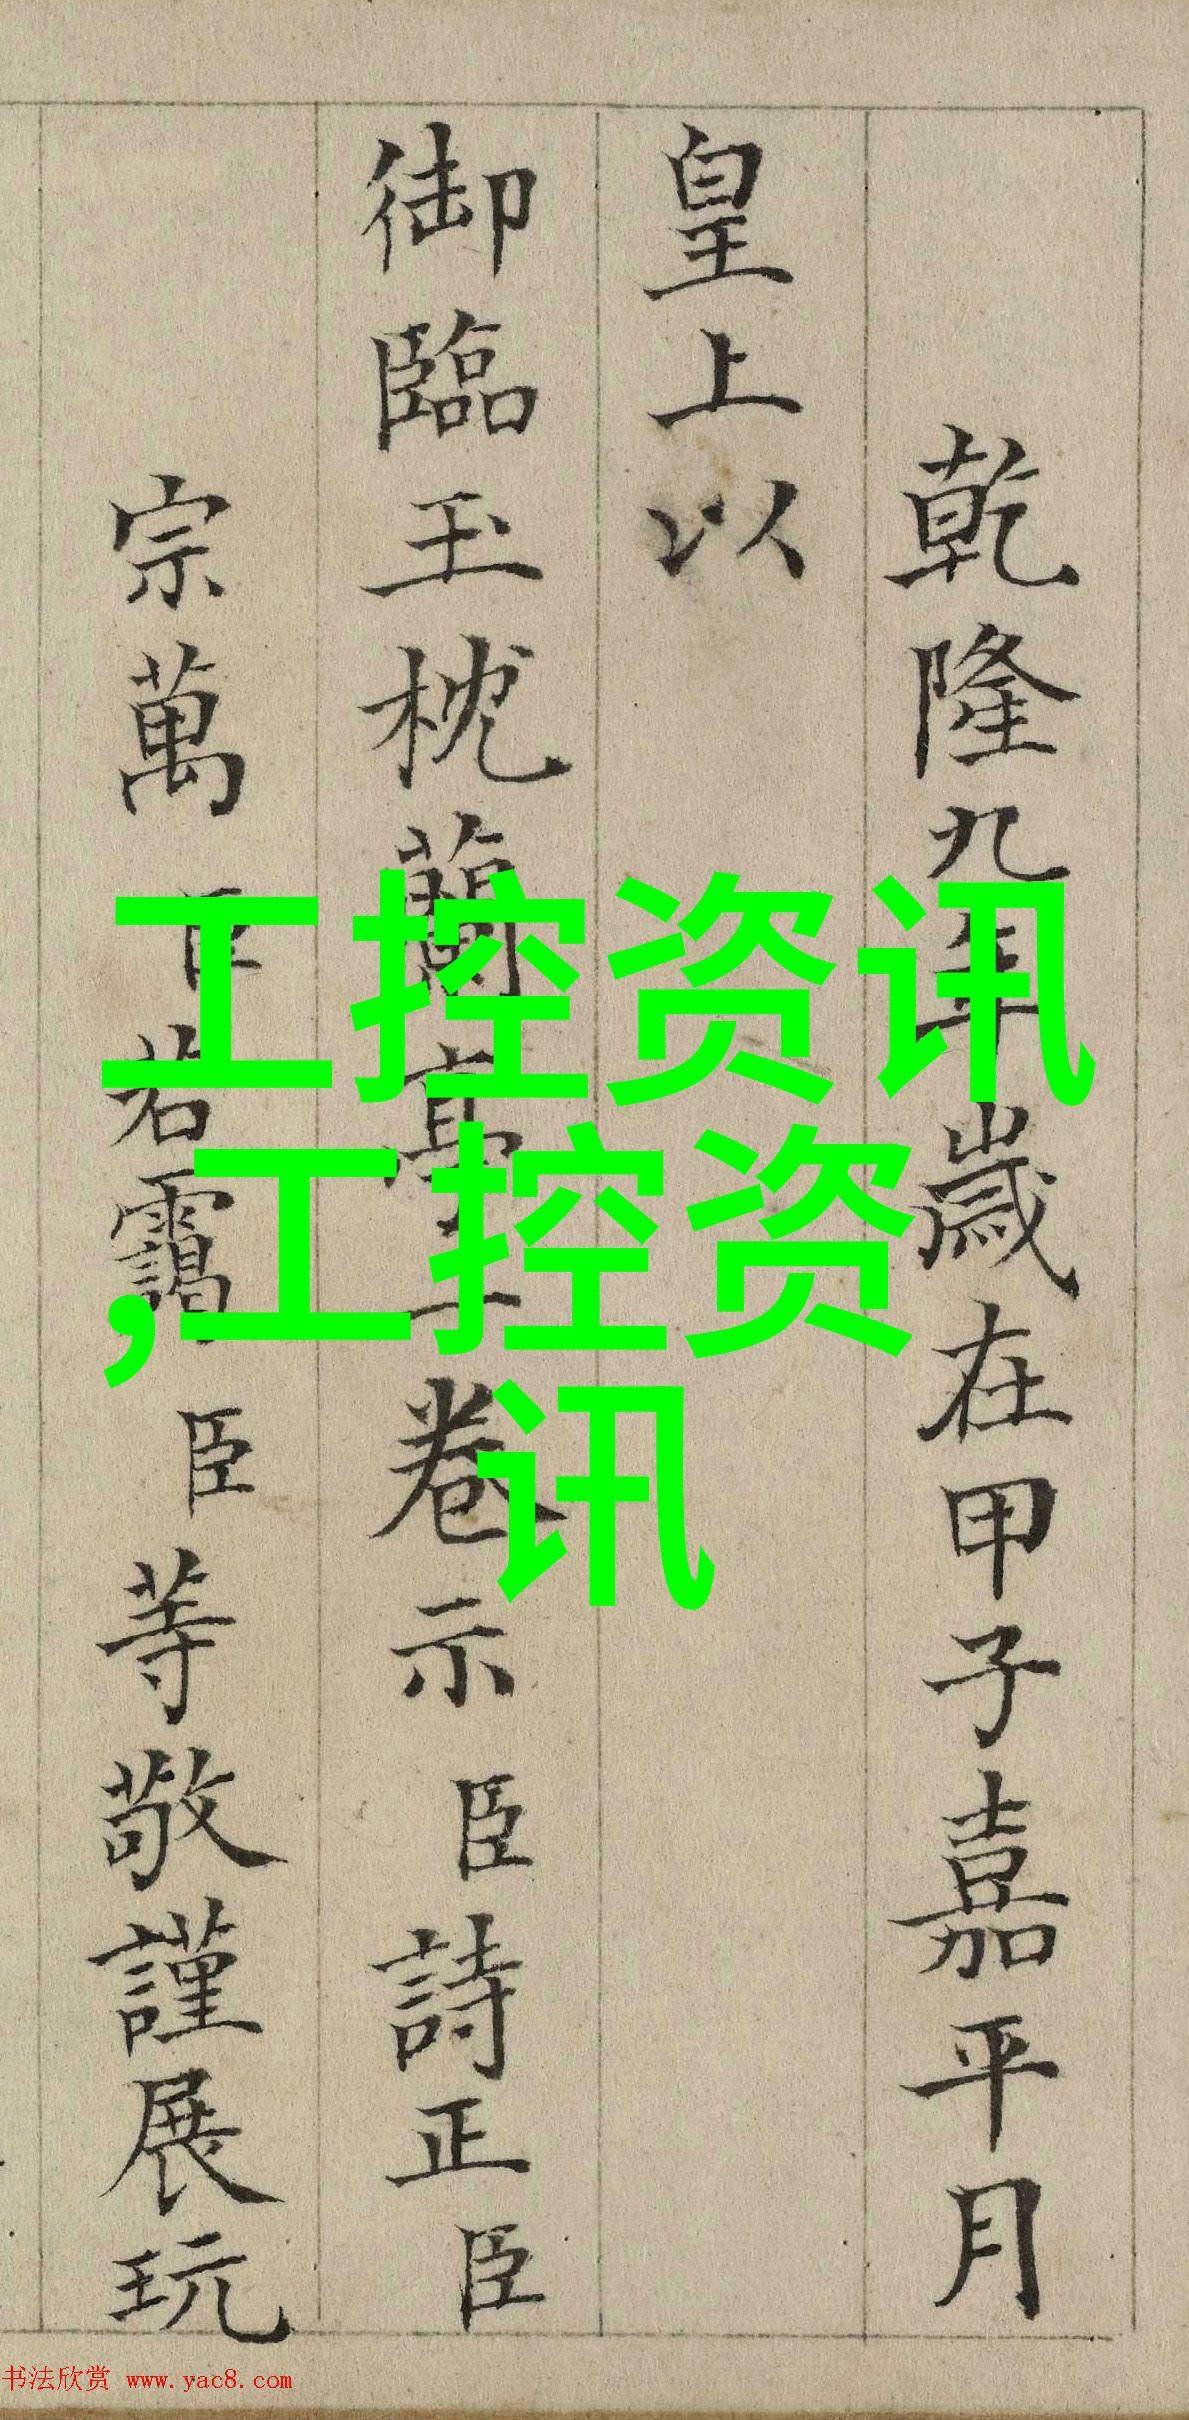 乾隆九年歲在甲子嘉平月
皇上以
御臨玉枕蘭亭一卷示臣詩正臣
宗萬臣若靄臣等敬謹展玩
工控资讯
,工控资
讯
书法欣赏 www.yac8.com